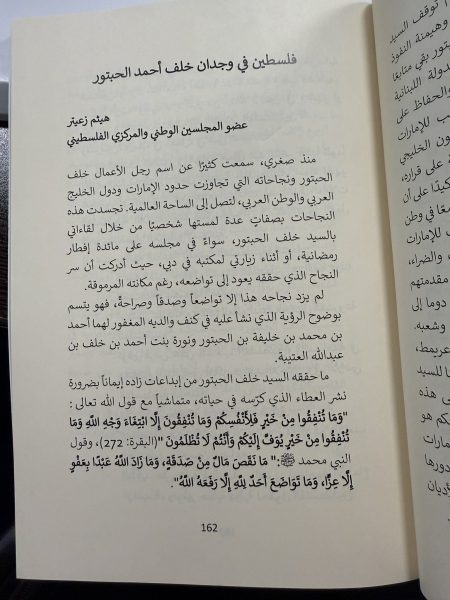 فلسطين في وجدان خلف أحمد الحبتور
هيثم زعيتر
عضو المجلسين الوطني والمركزي الفلسطيني
منذ صغري، سمعت كثيرًا عن اسم رجل الأعمال خلف
الحبتور ونجاحاته التي تجاوزت حدود الإمارات ودول الخليج
العربي والوطن العربي، لتصل إلى الساحة العالمية. تجسدت هذه
النجاحات بصفاتٍ عدة لمستها شخصيًا من خلال لقاءاتي
بالسيد خلف الحبتور، سواءً في مجلسه على مائدة إفطار
رمضانية، أو أثناء زيارتي لمكتبه في دبي، حيث أدركت أن سر
النجاح الذي حققه يعود إلى تواضعه، رغم مكانته المرموقة.
لم يزد نجاحه هذا إلا تواضعاً وصدقاً وصراحةً، فهو يتسم
بوضوح الرؤية الذي نشأ عليه في كنف والديه المغفور لهما أحمد
بن محمد بن خليفة بن الحبتور ونورة بنت أحمد بن خلف بن
عبدالله العتيبة.
ما حققه السيد خلف الحبتور من إبداعات زاده إيماناً بضرورة
نشر العطاء الذي كرّسه في حياته، متماشياً مع قول الله تعالى :
"وَمَا تُنْفِقُوا مِنْ خَيْرٍ فَلِأَنْفُسِكُمْ وَمَا تُنْفِقُونَ إِلَّا ابْتِغَاءَ وَجْهِ اللَّهِ وَمَا
تُنْفِقُوا مِنْ خَيْرٍ يُوَفَّ إِلَيْكُمْ وَأَنْتُمْ لَا تُظْلَمُونَ" (البقرة: 272)، وقول
النبي محمد ﷺ:" مَا نَقَصَ مَالٌ مِنْ صَدَقَةٍ، وَمَا زَادَ اللَّهُ عَبْدًا بِعَفْوٍ
إِلَّا عِزًّا، وَمَا تَوَاضَعَ أَحَدٌ لِلَّهِ إِلَّا رَفَعَهُ اللَّهُ".
162
توقف السيد
وهيمنة النفوذ
تور بقي متابعًا
دولة اللبنانية
والحفاظ على
ب للإمارات
ون الخليجي
ة على قراره،
كيدًا على أن
معًا في وطن
ب للإمارات
والضراء،
مقدمتهم
دوما إلى
وشعبه.
عريمط،
للسيد
ى هذه
كم هو
مارات
دورها
ؤديان